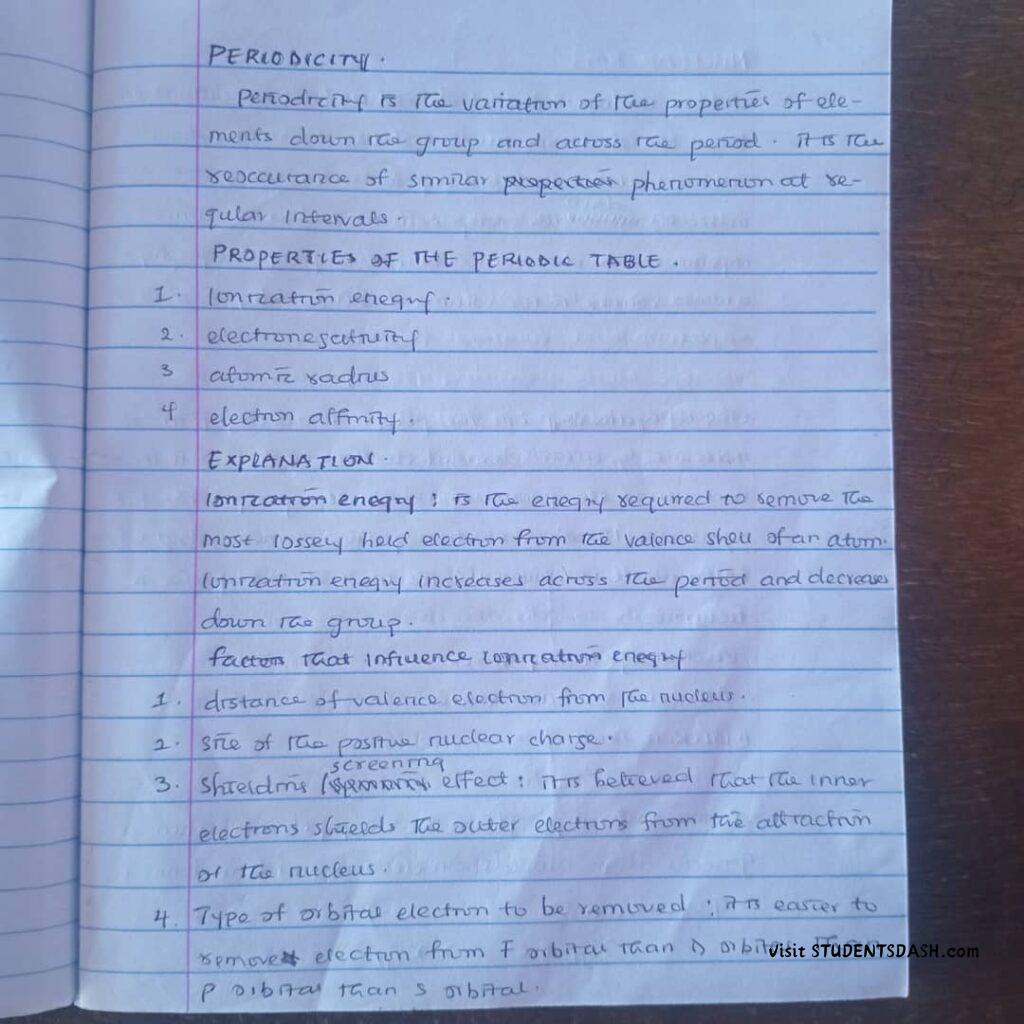 PERIODICITY.
Periodicity is the variation of the properties of ele-
ments down the group and across the period. it is the
reoccurance of similar phenomenon at re-
gular intervals.
PROPERTIES OF THE PERIODIC TABLE.
1. Ionization eneqry.
2. electronegativity
3 atomic radius
4 electron affinity.
EXPLANATION.
Ionization eneqry: is the eneqry required to remove the
most lossely held electron from the valence shell of an atom.
Ionization eneqry increases across the period and decreases
down the group.
factors that influence ionization eneqry
1. distance of valence electron from the nucleus.
2. size of the positive nuclear charge.
3. Shielding / screening effect: it is believed that the inner
electrons shields the outer electrons from the attraction
of the nucleus.
4. Type of orbital electron to be removed: it is easier to
remove electron from F orbital than D orbital
P orbital than S orbital.
Visit STUDENTSDASH.com